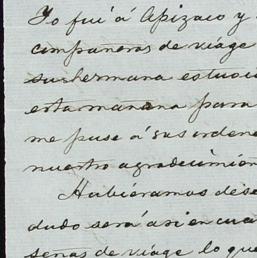 Yo fui á Apizaco y
compañeras de viage
su hermana estuvo
esta mañana para
me puse á sus ordene
nuestro agradecimien
Habiéramos dese
dudo será asi en cua
señas de viage lo que